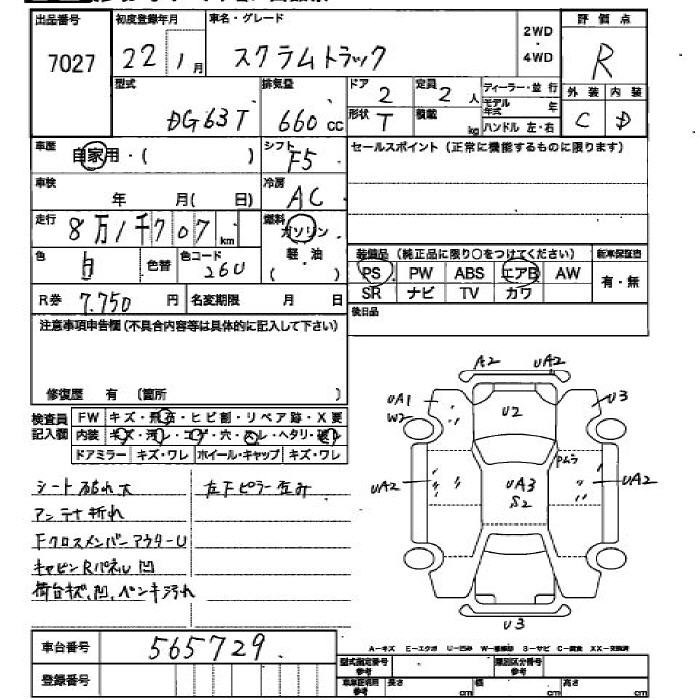 出品番号 初度登録年月 車名・グレード 評価点
7027 22年1月 スクラムトラック 2WD・4WD R
型式 排気量 ドア 定員 ディーラー・並行 外装 内装
DG63T 660cc 2 2人 モデル年式 年 C D
形状 T 積載 kg ハンドル 左・右
車歴 自家用・( ) シフト F5 セールスポイント(正常に機能するものに限ります)
車検 年 月( 日) 冷房 AC
走行 8万1千707km 燃料 ガソリン
色 白 色替 色コード 26U 軽・油
( )
装備品(純正品に限り○をつけてください) 新車保証書
PS PW ABS エアB AW 有・無
SR ナビ TV カワ
R券 7.750円 名変期限 月 日
後日品
注意事項申告欄(不具合内容等は具体的に記入して下さい)
修復歴 有(箇所 )
検査員記入欄 FW キズ・飛石・ヒビ割・リペア跡・X要
内装 キズ・汚レ・コゲ・穴・スレ・ヘタリ・破レ
ドアミラー キズ・ワレ ホイール・キャップ キズ・ワレ
A2 UA2
UA1 U3
W2 U2
UA2 UA3 UA2
S2
U3
シート破れ大 左Fピラー歪み
アンテナ折れ
FクロスメンバーアウターU
キャビンRパネル凹
荷台キズ、凹、ペンキ汚れ
車台番号 565729
登録番号
A-キズ E-エクボ U-凹み W-補修跡 S-サビ C-腐食 XX-交換済
型式指定番号 参考 類別区分番号 参考
車庫証明用 参考 長さ cm 幅 cm 高さ cm